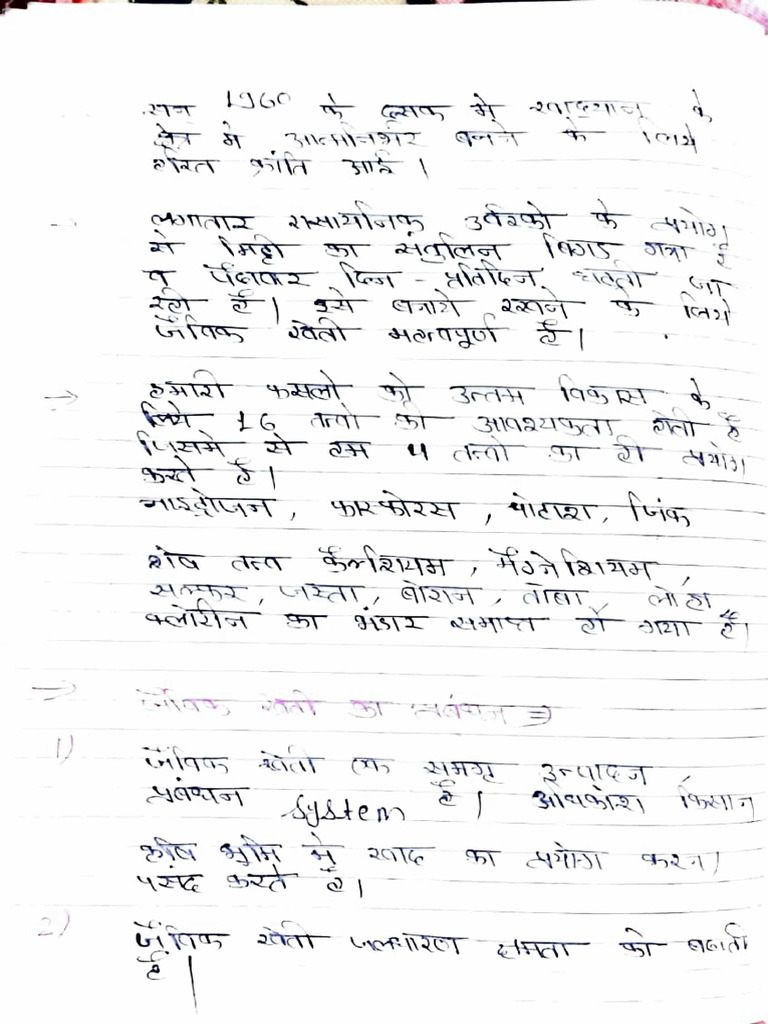 सन 1960 के दसक मे खाद्यान्न के
क्षेत्र मे आत्मनिर्भर बनने के लिये
हरित क्रांति आई।
→ लगातार रासायनिक उर्वरको के प्रयोग
से मिट्टी का संतुलन बिगड गया है
व पैदावार दिन - प्रतिदिन घटती जा
रही है। इसे बनाये रखने के लिये
जैविक खेती महत्वपूर्ण है।
→ हमारी फसलो को उत्तम विकास के
लिये 16 तत्वो की आवश्यकता होती है
जिसमे से हम 4 तत्वो का ही प्रयोग
करते है।
नाइट्रोजन, फास्फोरस, पोटाश, जिंक
शेष तत्व कैल्शियम, मैग्नेशियम,
सल्फर, जस्ता, बोरान, तांबा, लोहा
क्लोरीन का भंडार समाप्त हो गया है।
⇒ जैविक खेती का प्रबंधन ⇒
1) जैविक खेती एक समग्र उत्पादन
प्रबंधन System है। अधिकांश किसान
कृषि भूमि मे खाद का प्रयोग करना
पसंद करते है।
2) जैविक खेती जलधारण क्षमता को बढाती
है।